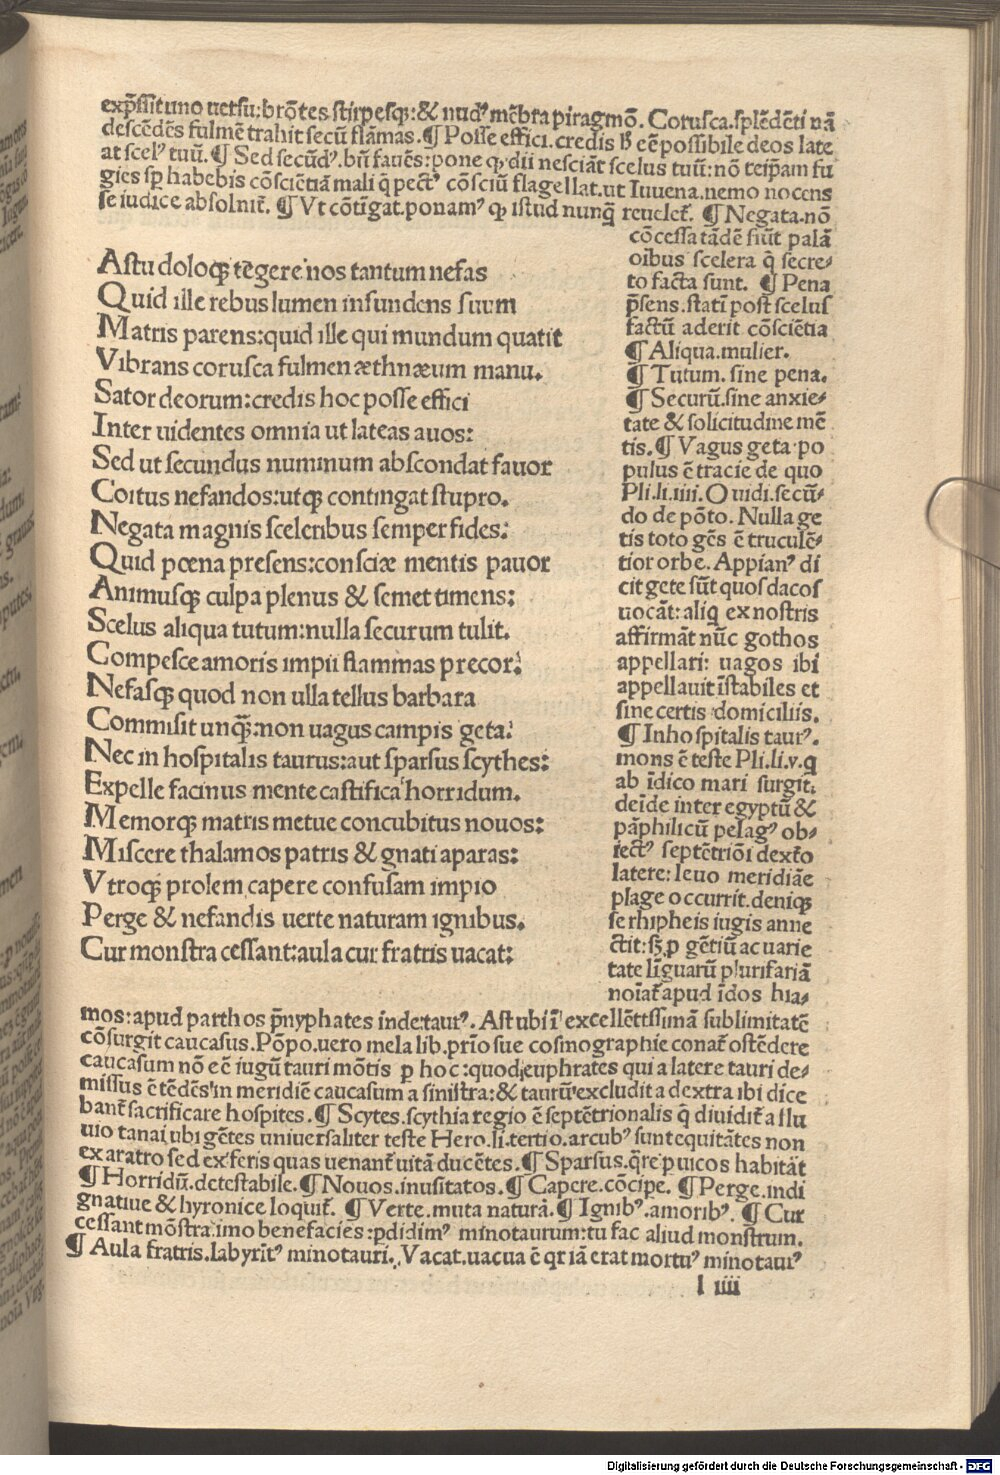 exp̄ssit uno uersu:brōtes.stirpesq;:& nudꝰ mēbra piragmō. Corusca.splēdēti uā
descēdēs fulmē trahit secū flāmas.¶ Posse effici.credis ƀ eē possibile deos late
at scelꝰ tuū.¶ Sed secūdꝰ.bn̄ fauēs:pone ꝙ dii nesciāt scelus tuū:nō teip̄am fu
gies sꝑ habebis cōsciētiā mali q̄ pectꝰ cōsciū flagellat.ut Iuuena.nemo nocens
se iudice absolnit̄. ¶ Vt cōtīgat.ponamꝰ ꝙ istud nunq̄ reuelet̄. ¶ Negata.nō
cōcessa tādē fiūt palā
oībus scelera q̄ secre⸗
to facta sunt. ¶ Pena
p̄sens.statī post scelus
factū aderit cōsciētia
¶ Aliqua.mulier.
¶ Tutum. sine pena.
¶ Securū.sine anxie⸗
tate & solicitudine mē
tis.¶ Vagus geta.po
pulus ē tracie de quo
Pli.li.iiii.Ouidi.secū⸗
do de pōto. Nulla ge
tis toto gēs ē truculē⸗
tior orbe. Appianꝰ di
cit gete sūt quos dacos
uocāt: aliq̄ ex nostris
affirmāt nūc gothos
appellari: uagos ibi
appellauit īstabiles et
sine certis domiciliis.
¶ Inhospitalis taurꝰ.
mons ē teste Pli.li.v.q̄
ab īdico mari surgit.
deīde inter egyptū &
pāphilicū pelagꝰ ob⸗
iectꝰ septētrioī dext̄o
latere: leuo meridiāe
plage occurrit.deniqꝫ
se rhipheis iugis anne
ctit: sꝫ ꝑ gētiū ac uarie
tate līguarū plurifariā
noīat̄ apud īdos hia⸗
Astu doloqꝫ tegere nos tantum nefas
Quid ille rebus lumen infundens suum
Matris parens:quid ille qui mundum quatit
Vibrans corusca fulmen æthnæum manu.
Sator deorum:credis hoc posse effici
Inter uidentes omnia ut lateas auos:
Sed ut secundus numinum abscondat fauor
Coitus nefandos:utqꝫ contingat stupro.
Negata magnis sceleribus semper fides:
Quid pœna presens:consciæ mentis pauor
Animusqꝫ culpa plenus & semet timens:
Scelus aliqua tutum:nulla securum tulit.
Compesce amoris impii flammas precor:
Nefasqꝫ quod non ulla tellus barbara
Commisit unqꝫ:non uagus campis geta:
Nec inhospitalis taurus:aut sparsus scythes:
Expelle facinus mente castifica horridum.
Memorqꝫ matris metue concubitus nouos:
Miscere thalamos patris & gnati aparas:
Vtroqꝫ prolem capere confusam impio
Perge & nefandis uerte naturam ignibus.
Cur monstra cessant:aula cur fratris uacat:
mos:apud parthos p̄nyphates īnde:taurꝰ. Ast ubi ī excellētissimā sublimitatē
cōsurgit caucasus.Pōpo.uero mela lib.prīo sue cosmographie conat̄ ostēdere
caucasum nō eē iugū tauri mōtis ꝑ hoc:quod euphrates qui a latere tauri de⸗
missus ē tēdēs in meridiē caucasum a sinistra:& taurū excludit a dextra ibi dice
bant̄ sacrificare hospites.¶ Scytes.scythia regio ē septētrionalis q̄ diuidit̄ a flu
uio tanai ubi gētes uniuersaliter teste Hero.li.tertio.arcubꝰ sunt equitātes non
ex aratro sed ex feris quas uenant̄ uitā ducētes.¶ Sparsus.q̄re ꝑ uicos habitāt
¶ Horridū.detestabile.¶ Nouos.inusitatos.¶ Capere.cōcipe. ¶ Perge.indi
gnatiue & hyronice loquit̄. ¶ Verte.muta naturā.¶ Ignibꝰ.amoribꝰ. ¶ Cur
cessant mōstra.imo benefacies:ꝑdidimꝰ minotaurum:tu fac aliud monstrum.
¶ Aula fratris.labyrīt̄ minotauri. Vacat.uacua ē qr iā erat mortuꝰ minotaurꝰ
l iiii
Digitalisierung gefördert durch die Deutsche Forschungsgemeinschaft - DFG